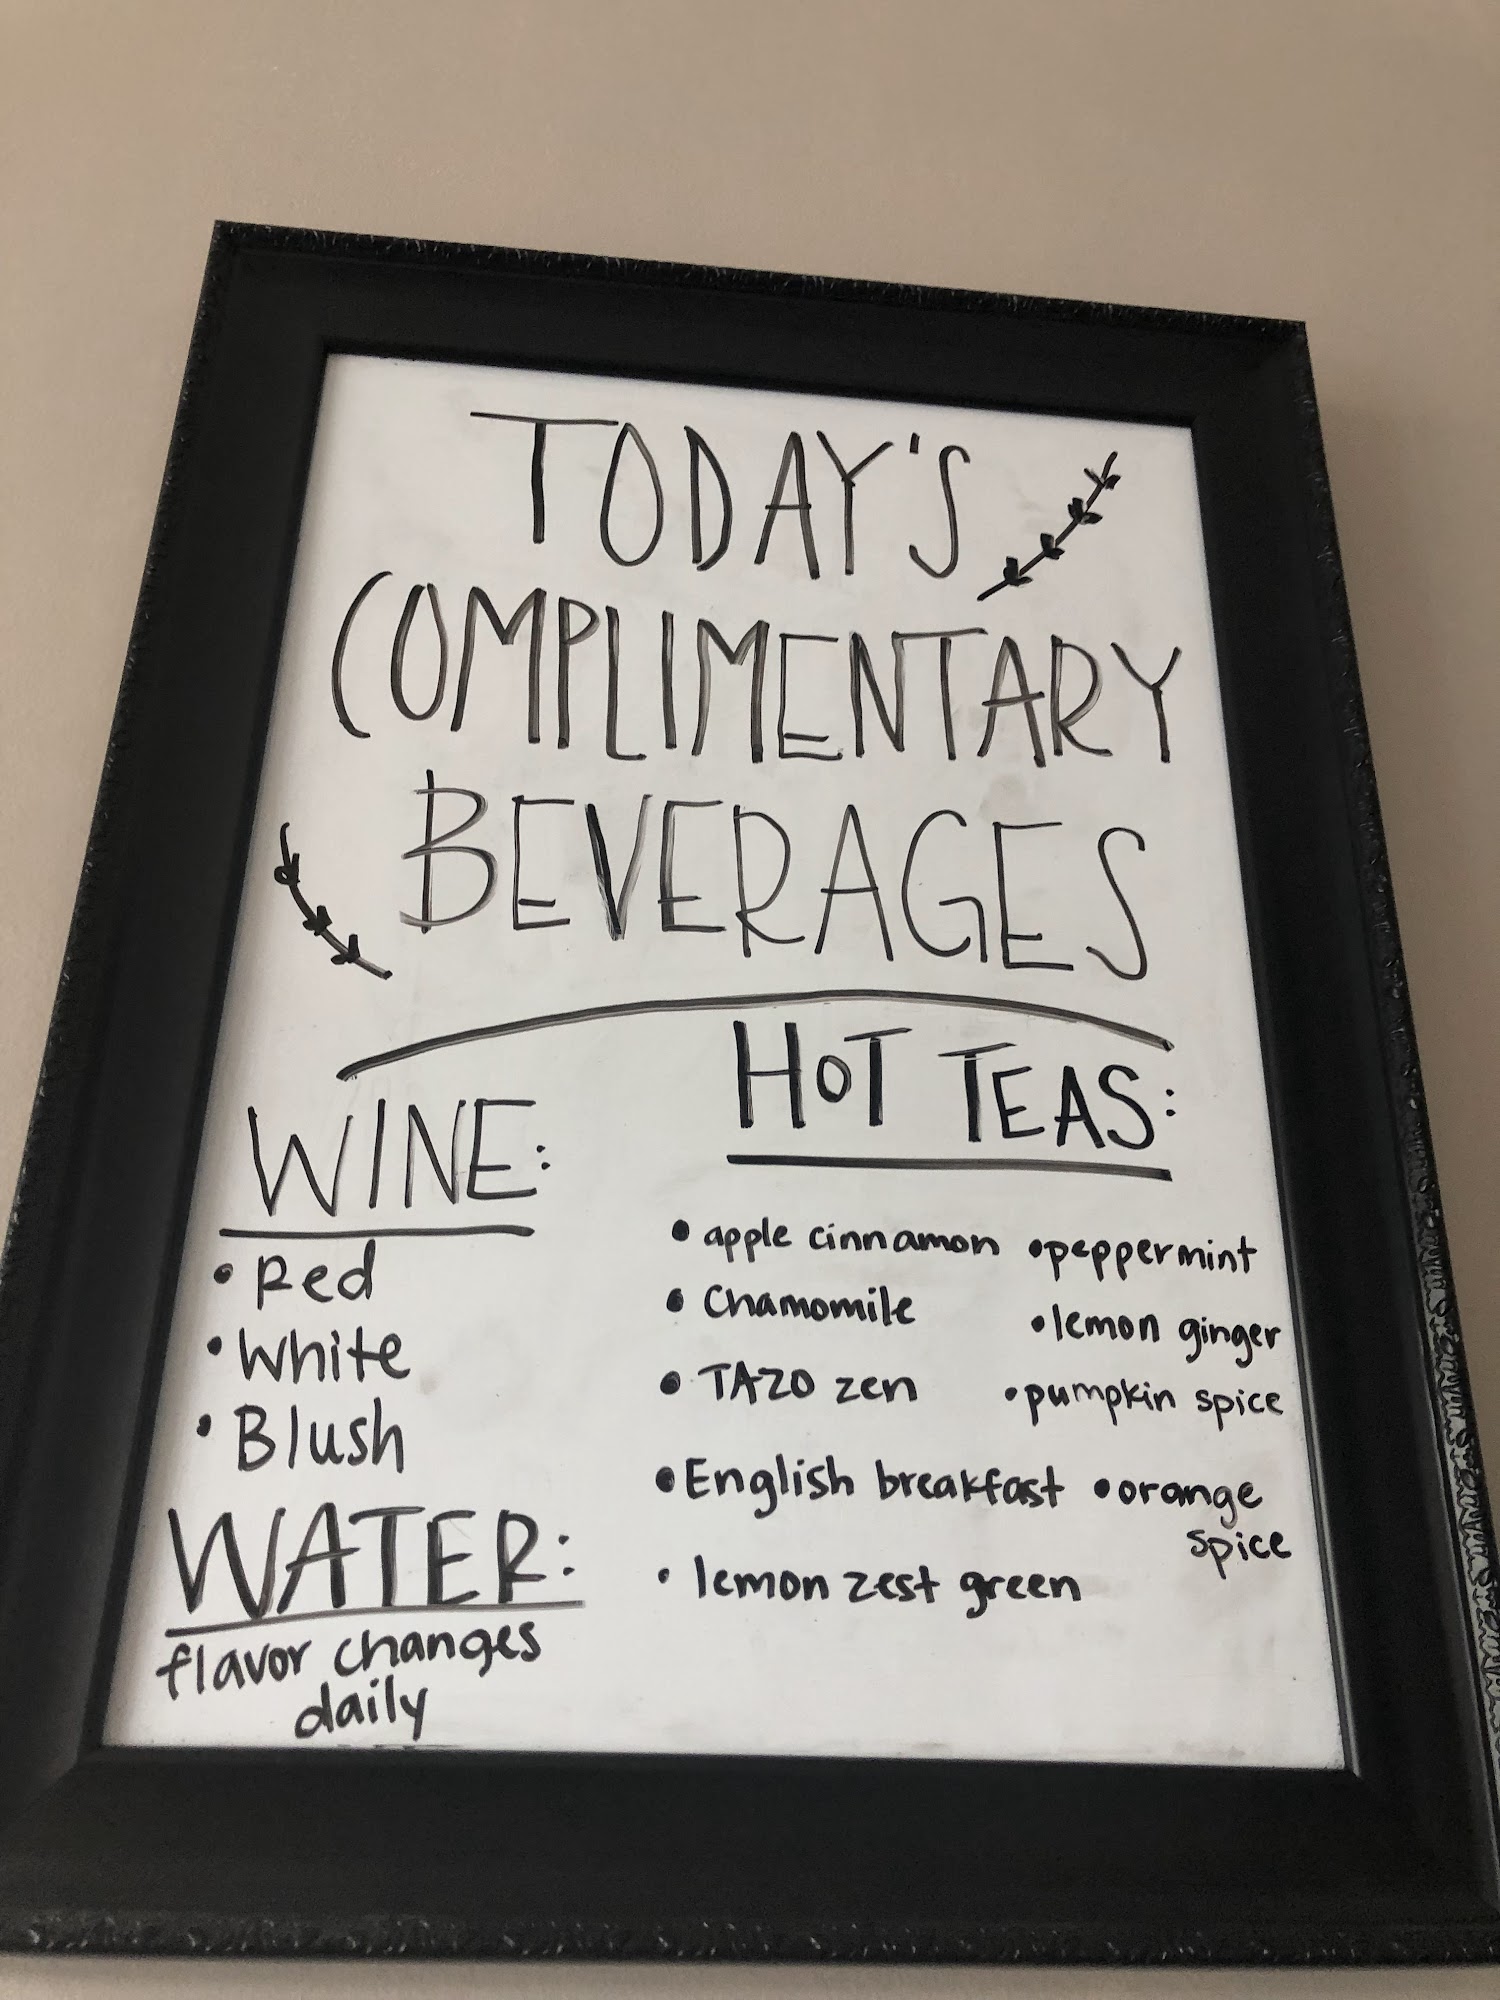 TODAY'S
COMPLIMENTARY
BEVERAGES
WINE:
• Red
• White
• Blush
WATER:
flavor changes
daily
HOT TEAS:
• apple cinnamon
• Chamomile
• TAZO zen
• English breakfast
• lemon zest green
• peppermint
• lemon ginger
• pumpkin spice
• orange
spice